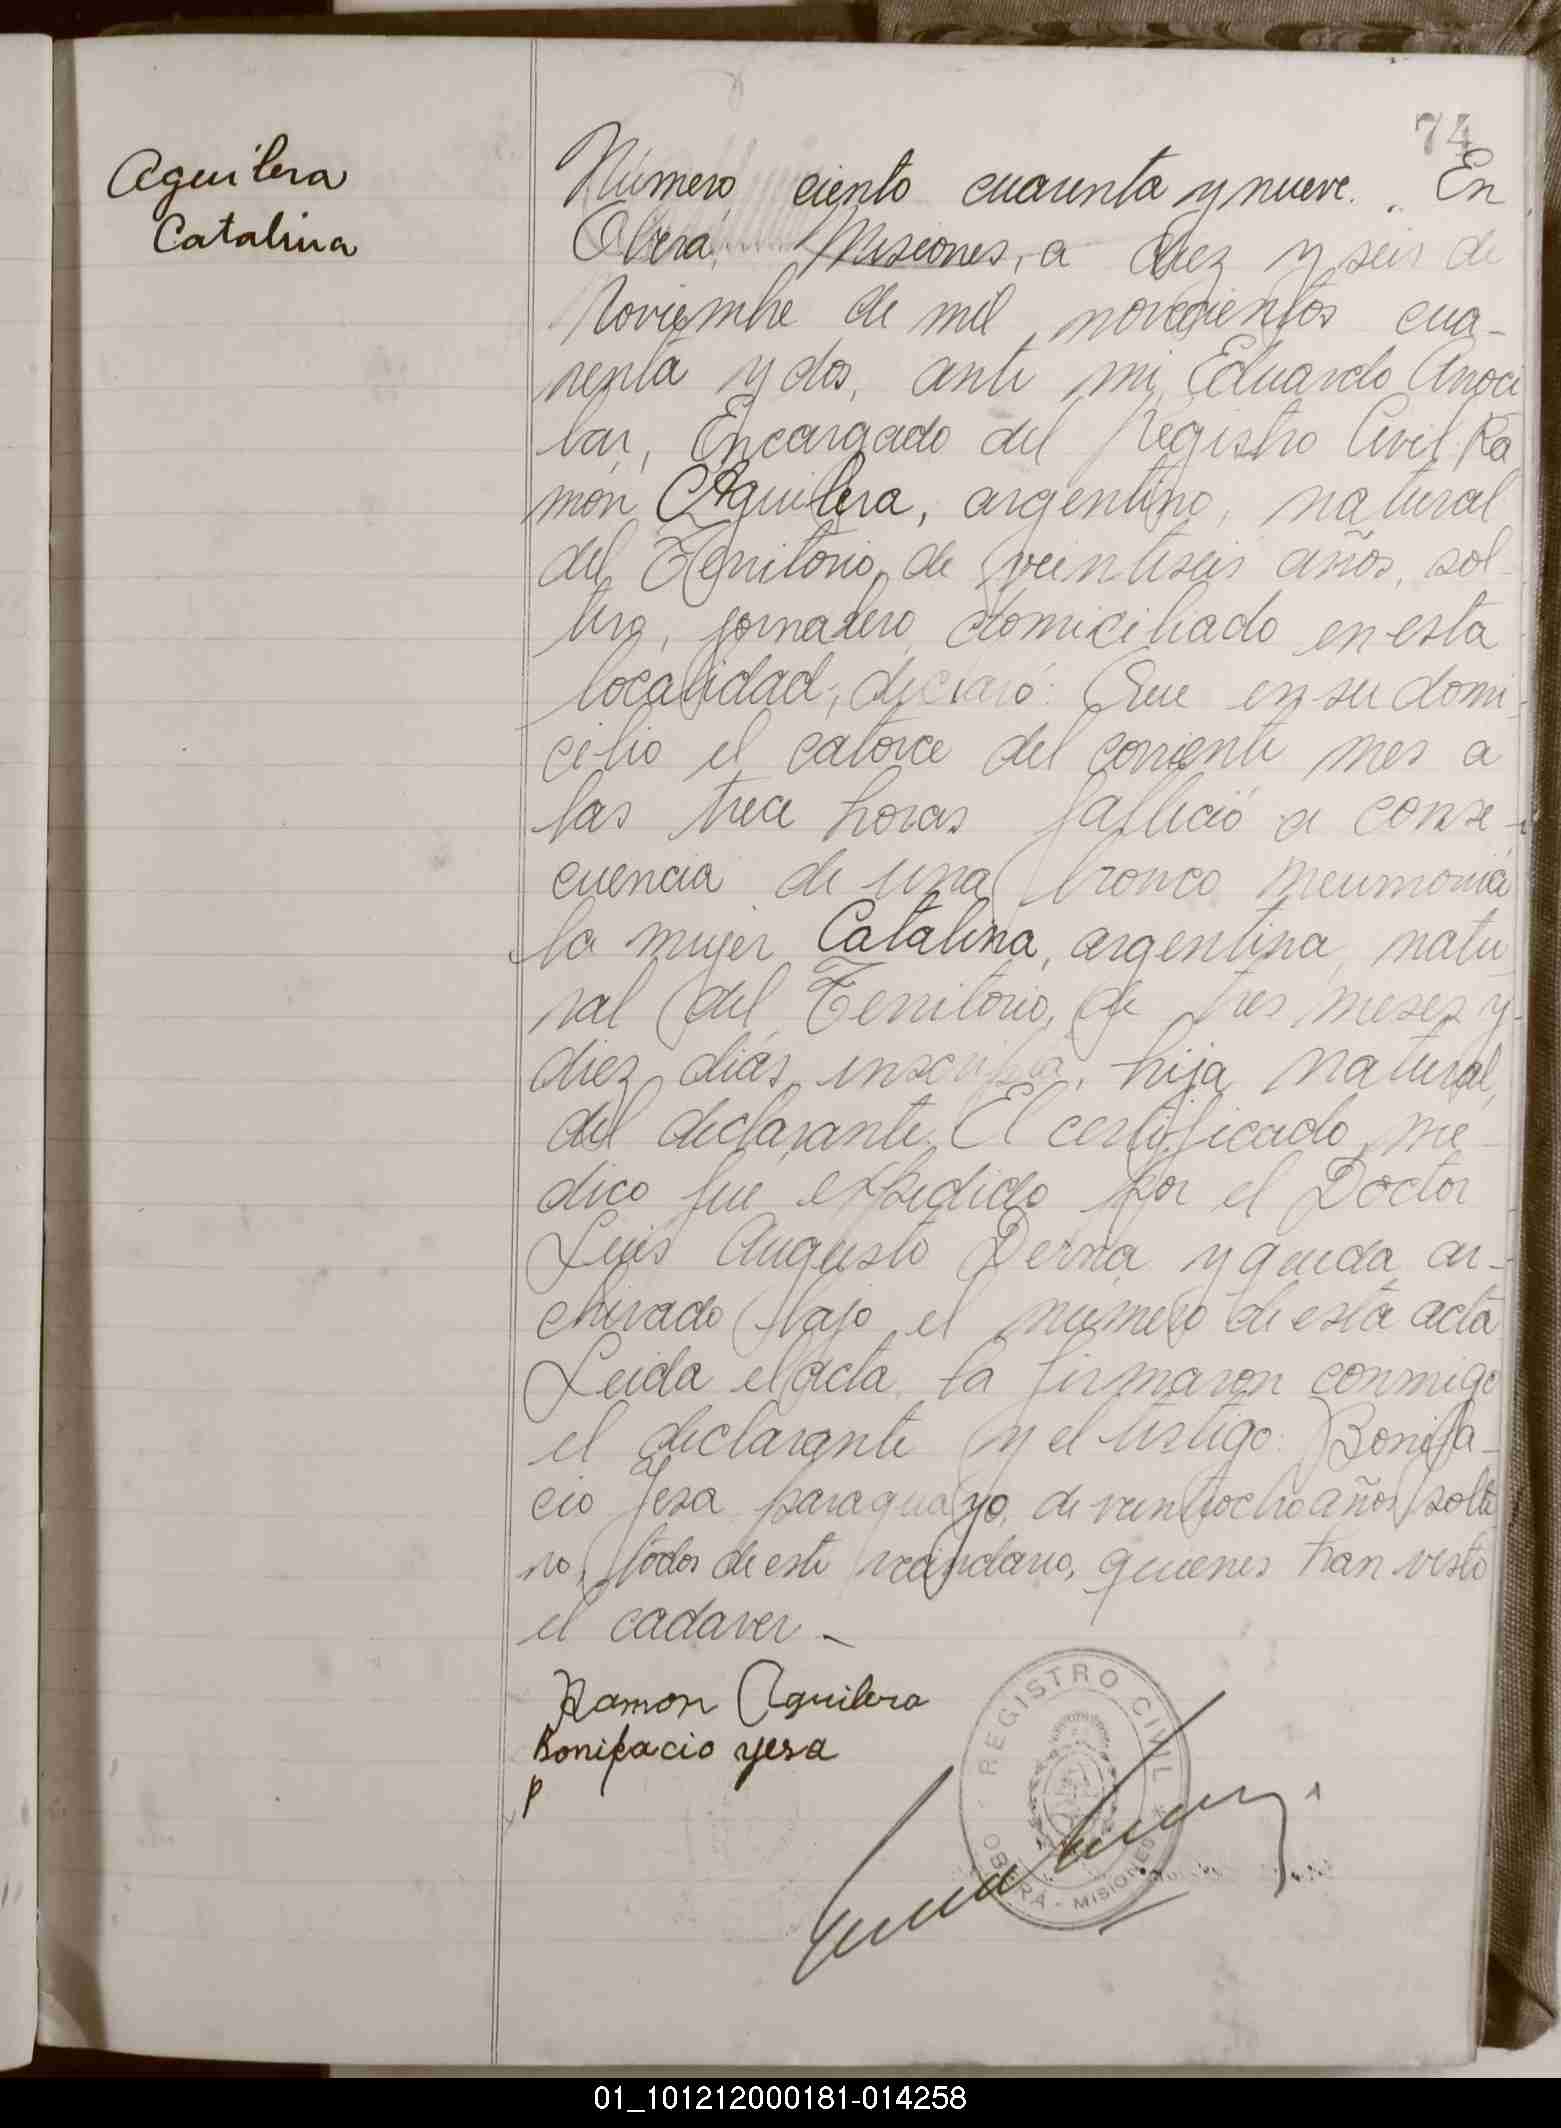 74
Aguilera
Catalina
Número ciento cuarenta y nueve. En
Oberá, Misiones, a diez y seis de
Noviembre de mil novecientos cua-
renta y dos, ante mi, Eduardo Anoci
bar, Encargado del Registro Civil, Ra
món Aguilera, argentino, natural
del Territorio, de veintiseis años, sol-
tero, jornalero, domiciliado en esta
localidad, declaró: Que en su domi-
cilio el catorce del corriente mes a
las trece horas falleció a conse-
cuencia de una bronco neumonia
la mujer Catalina, argentina, natu
ral del Territorio, de tres meses y
diez dias, inscripta, hija natural,
del declarante. El certificado me-
dico fue expedido por el Doctor
Luis Augusto Derna y queda ar-
chivado bajo el número de esta acta
Leida el acta la firmaron conmigo
el declarante y el testigo: Bonifa-
cio Yesa paraguayo, de veintiocho años, solte
ro, todos de este vecindario, quienes han visto
el cadaver.-
Ramon Aguilera
Bonifacio yesa
REGISTRO CIVIL
OBERÁ - MISIONES
01_101212000181-014258